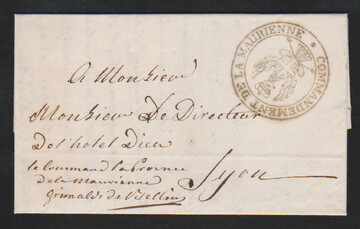 COMMANDEMENT DE LA MAURIENNE *
A Monsieur
Monsieur Le Directeur
de l'hotel Dieu
le Command la Province
de la Maurienne
grimaldi de
Lyon